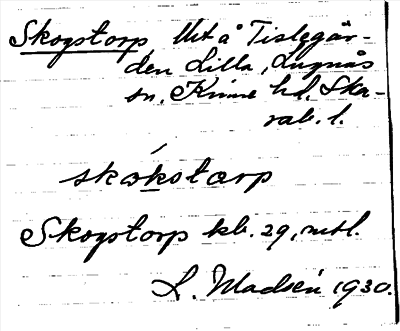 Skogstorp Ut å Tistegår-
den Lilla, Lugnås
sn, Kinne hd, Ska-
rab. l.
skɷkstɷrp
Skogstorp kb. 29, mtl.
L. Madsén 1930.